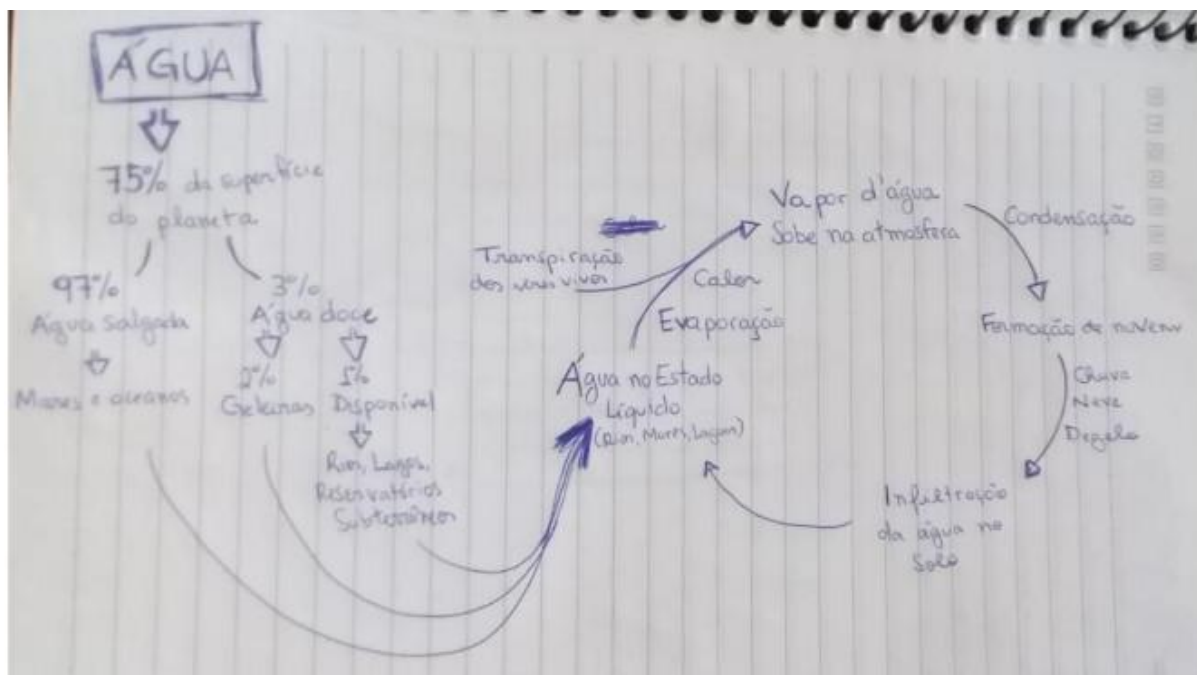 ÁGUA
75% da superfície
do planeta
97%
Água salgada
Mares e oceanos
3%
Água doce
2%
Geleiras
1%
Disponível
Rios, Lagos,
Reservatórios
Subterrâneos
Transpiração
dos seres vivos
Calor
Evaporação
Água no Estado
Líquido
(Rios, Mares, Lagos)
Vapor d'água
Sobe na atmosfera
Condensação
Formação de nuvens
Chuva
Neve
Degelo
Infiltração
da água no
Solo